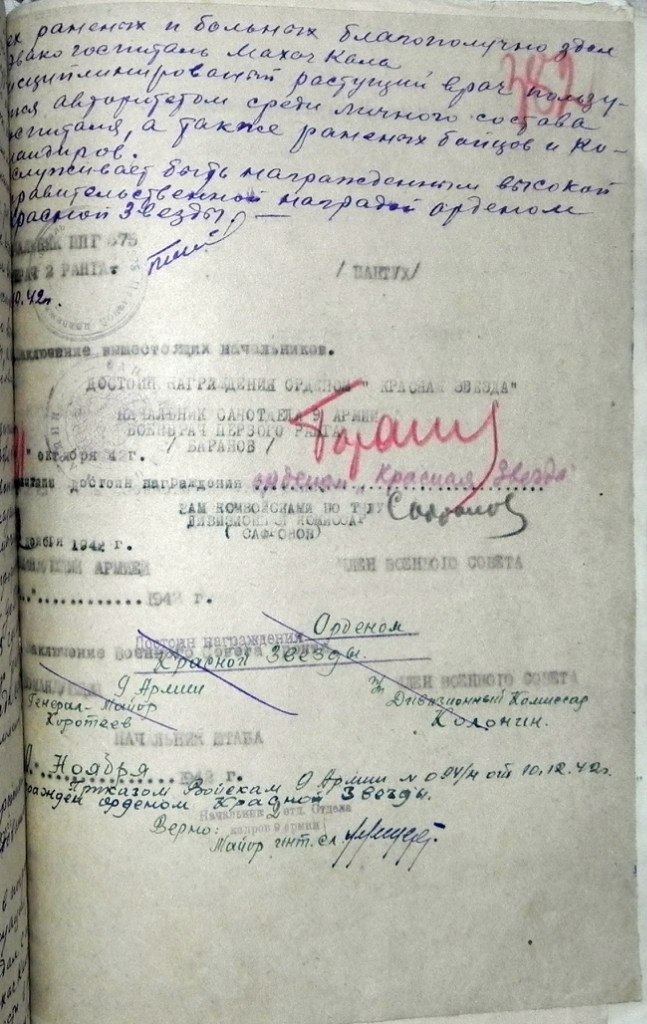 ех раненых и больных благополучно здал
эвакогоспиталь Махач Кала
исциплинированый растущий врач пользу-
ися авторитетом среди личного состава
оспиталя, а также раненых бойцов и Ко-
мандиров.
служивает быть награжденным высокой
равительственной наградой орденом
расной Звезды. —
382
ППГ 575
РАЧ 2 РАНГА
/ ПАНТУХ/
0.42г.
аключение вышестоящих начальников.
ДОСТОИН НАГРАЖДЕНИЯ ОРДЕНОМ " КРАСНАЯ ЗВЕЗДА"
НАЧАЛЬНИК САНОТДЕЛА 9 АРМИИ
ВОЕНВРАЧ ПЕРВОГО РАНГА
/ БАРАНОВ /
" октября 42г.
достоин награждения орденом „Красная Звезда"
ЗАМ КОМВОЙСКАМИ ПО ТЫЛУ
ДИВИЗИОННЫЙ КОМИССАР
( САФРОНОВ)
Сафронов
ноября 1942 г.
АНДУЮЩИЙ АРМИЕЙ
ЧЛЕН ВОЕННОГО СОВЕТА
."............. 194 г.
Достоин награждения Орденом
аключение Военного Совета
Красной Звезды.
9 Армии
ЧЛЕН ВОЕННОГО СОВЕТА
Генерал-Майор
Дивизионный Комиссар
Коротеев
Колонин.
НАЧАЛЬНИК ШТАБА
Ноября 1942 г.
Приказом Войскам 9 Армии № 094/н от 10.12.42г.
ражден орденом Красной Звезды.
Начальник отд. Отдела
кадров 9 армии
Верно:
Майор инт. сл.